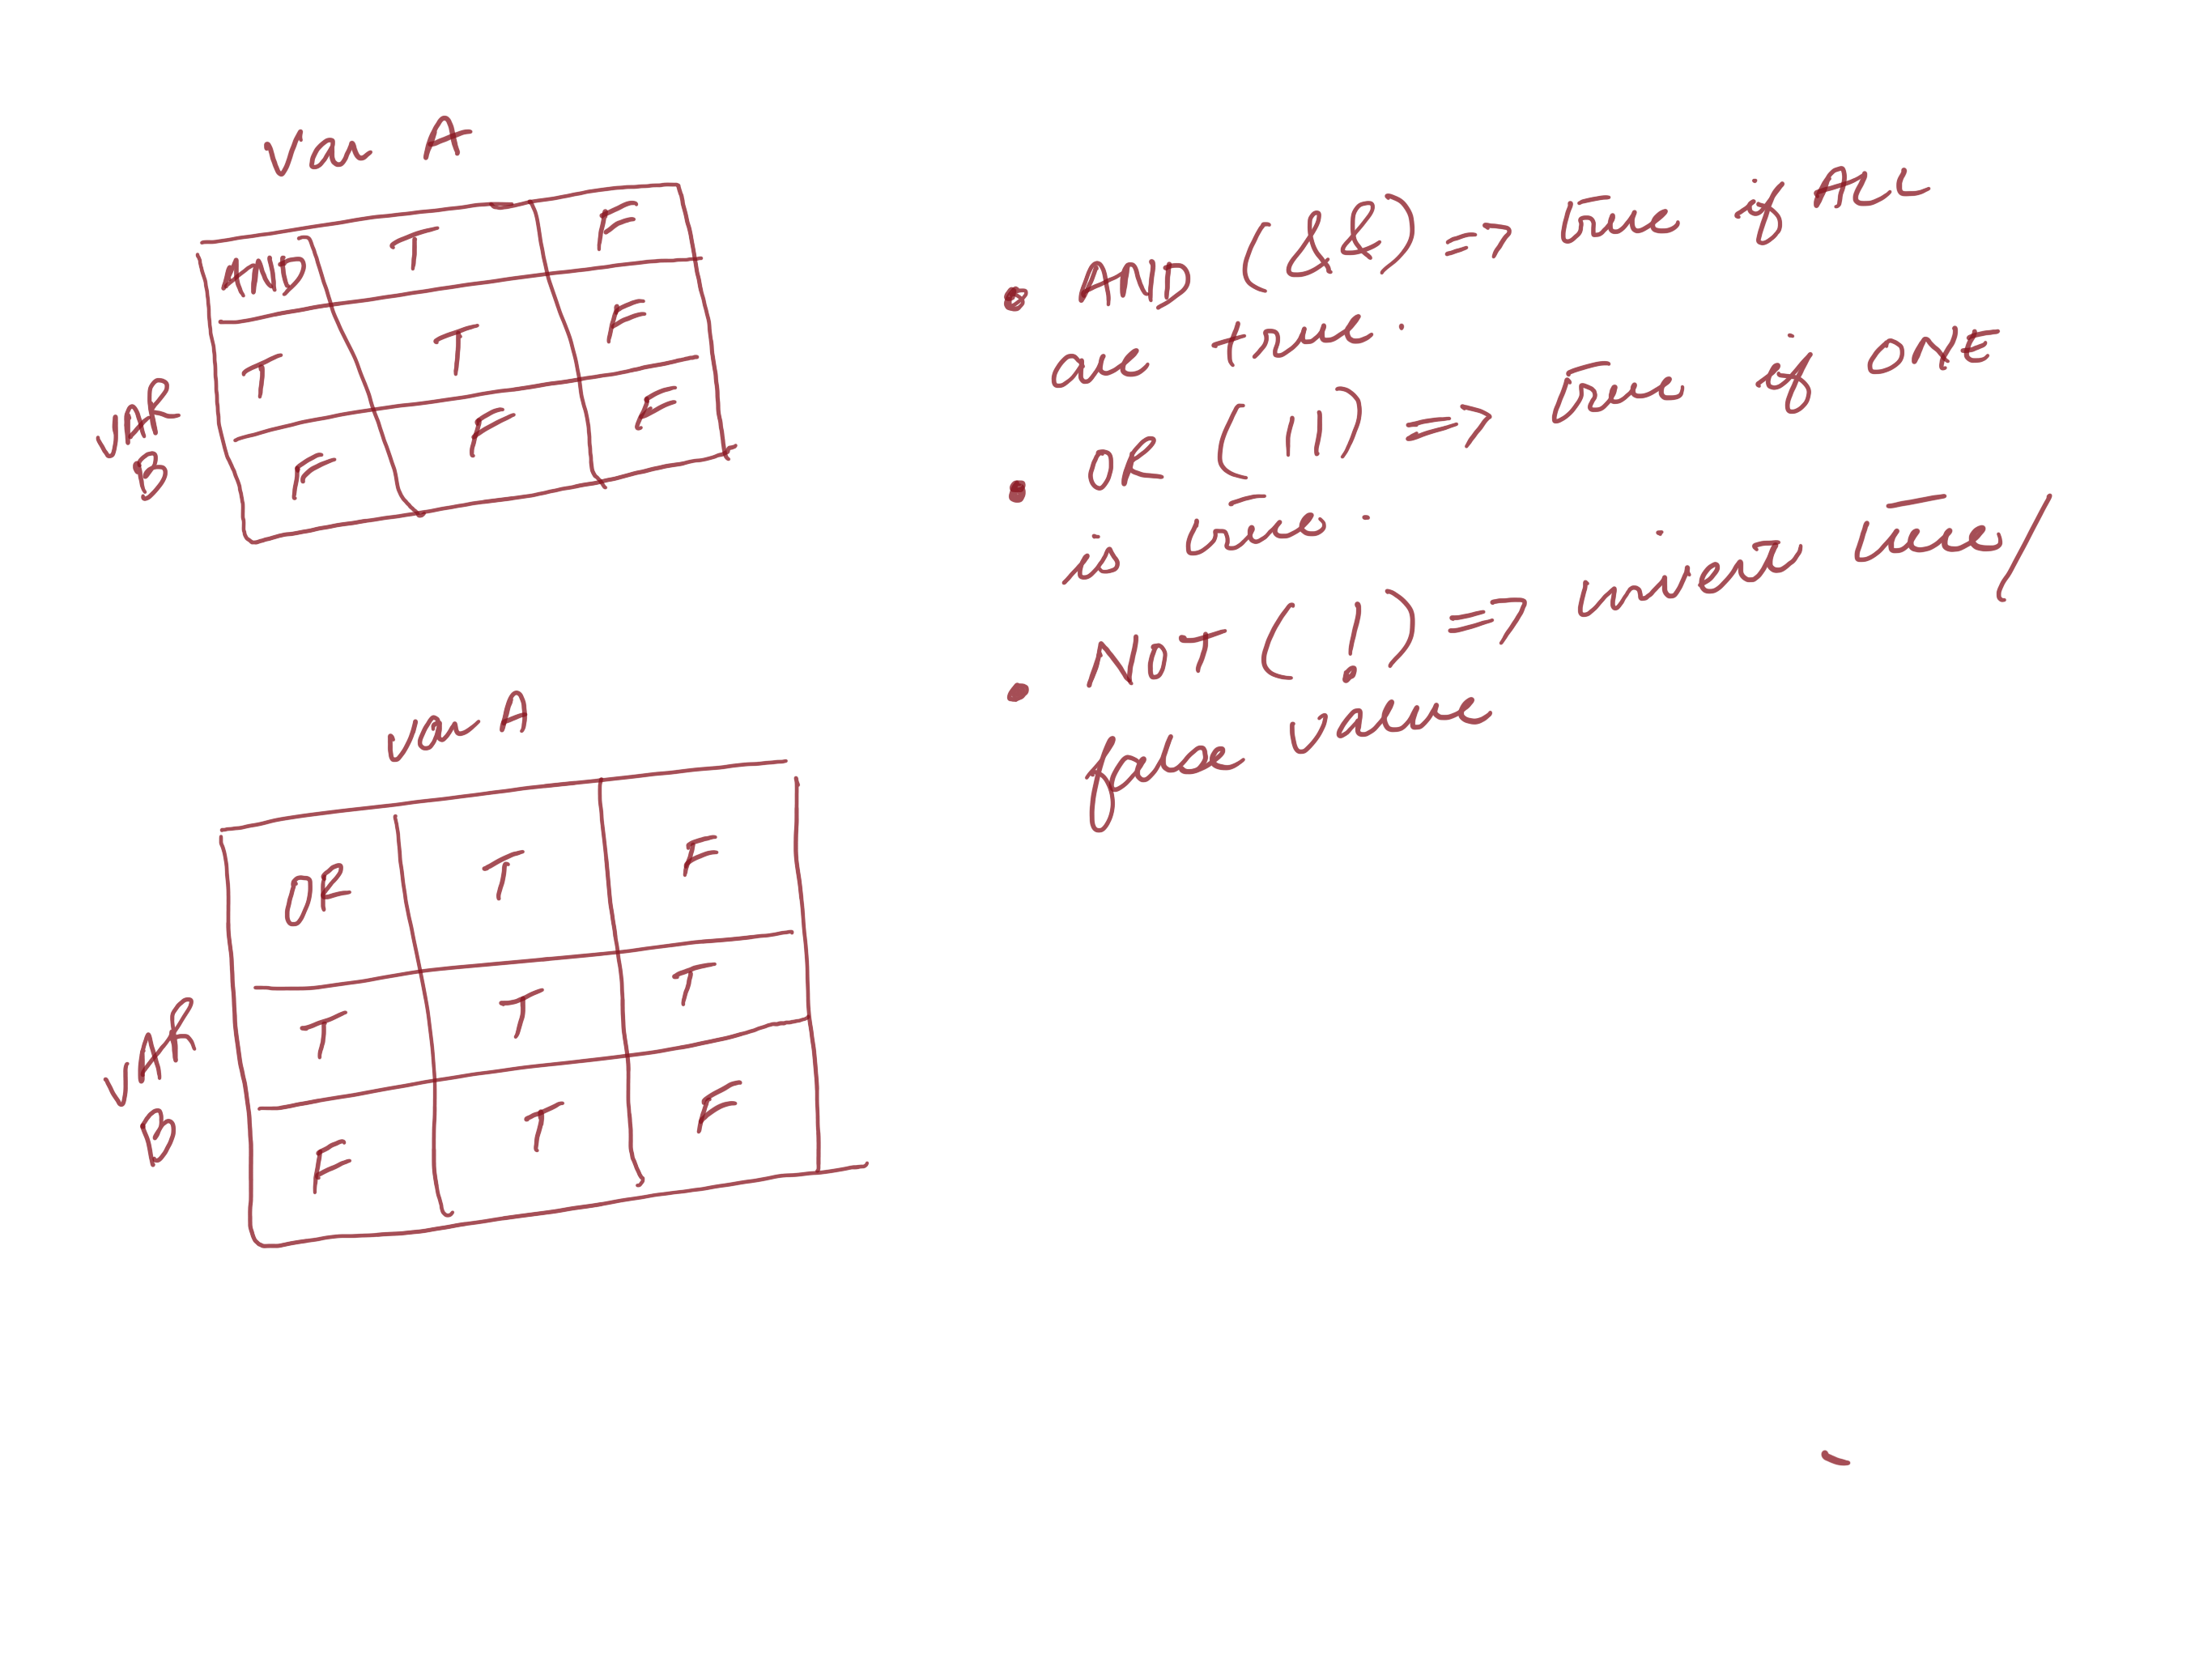 Var A
AND T F
T T F
VAR
B
F F F
Var A
OR T F
T T T
VAR
B
F T F
• AND (&&) => true if ALL
are true.
• OR (||) => True if ONE
is true.
• NOT (!) => invists true/
false value